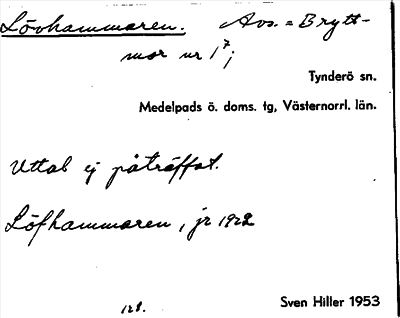 Lövhammaren. Avs. = Brytt-
mor nr 1⁷;
Tynderö sn.
Medelpads ö. doms. tg, Västernorrl. län.
Uttal ej påträffat.
Löfhammaren, jr 1922
Sven Hiller 1953
128.